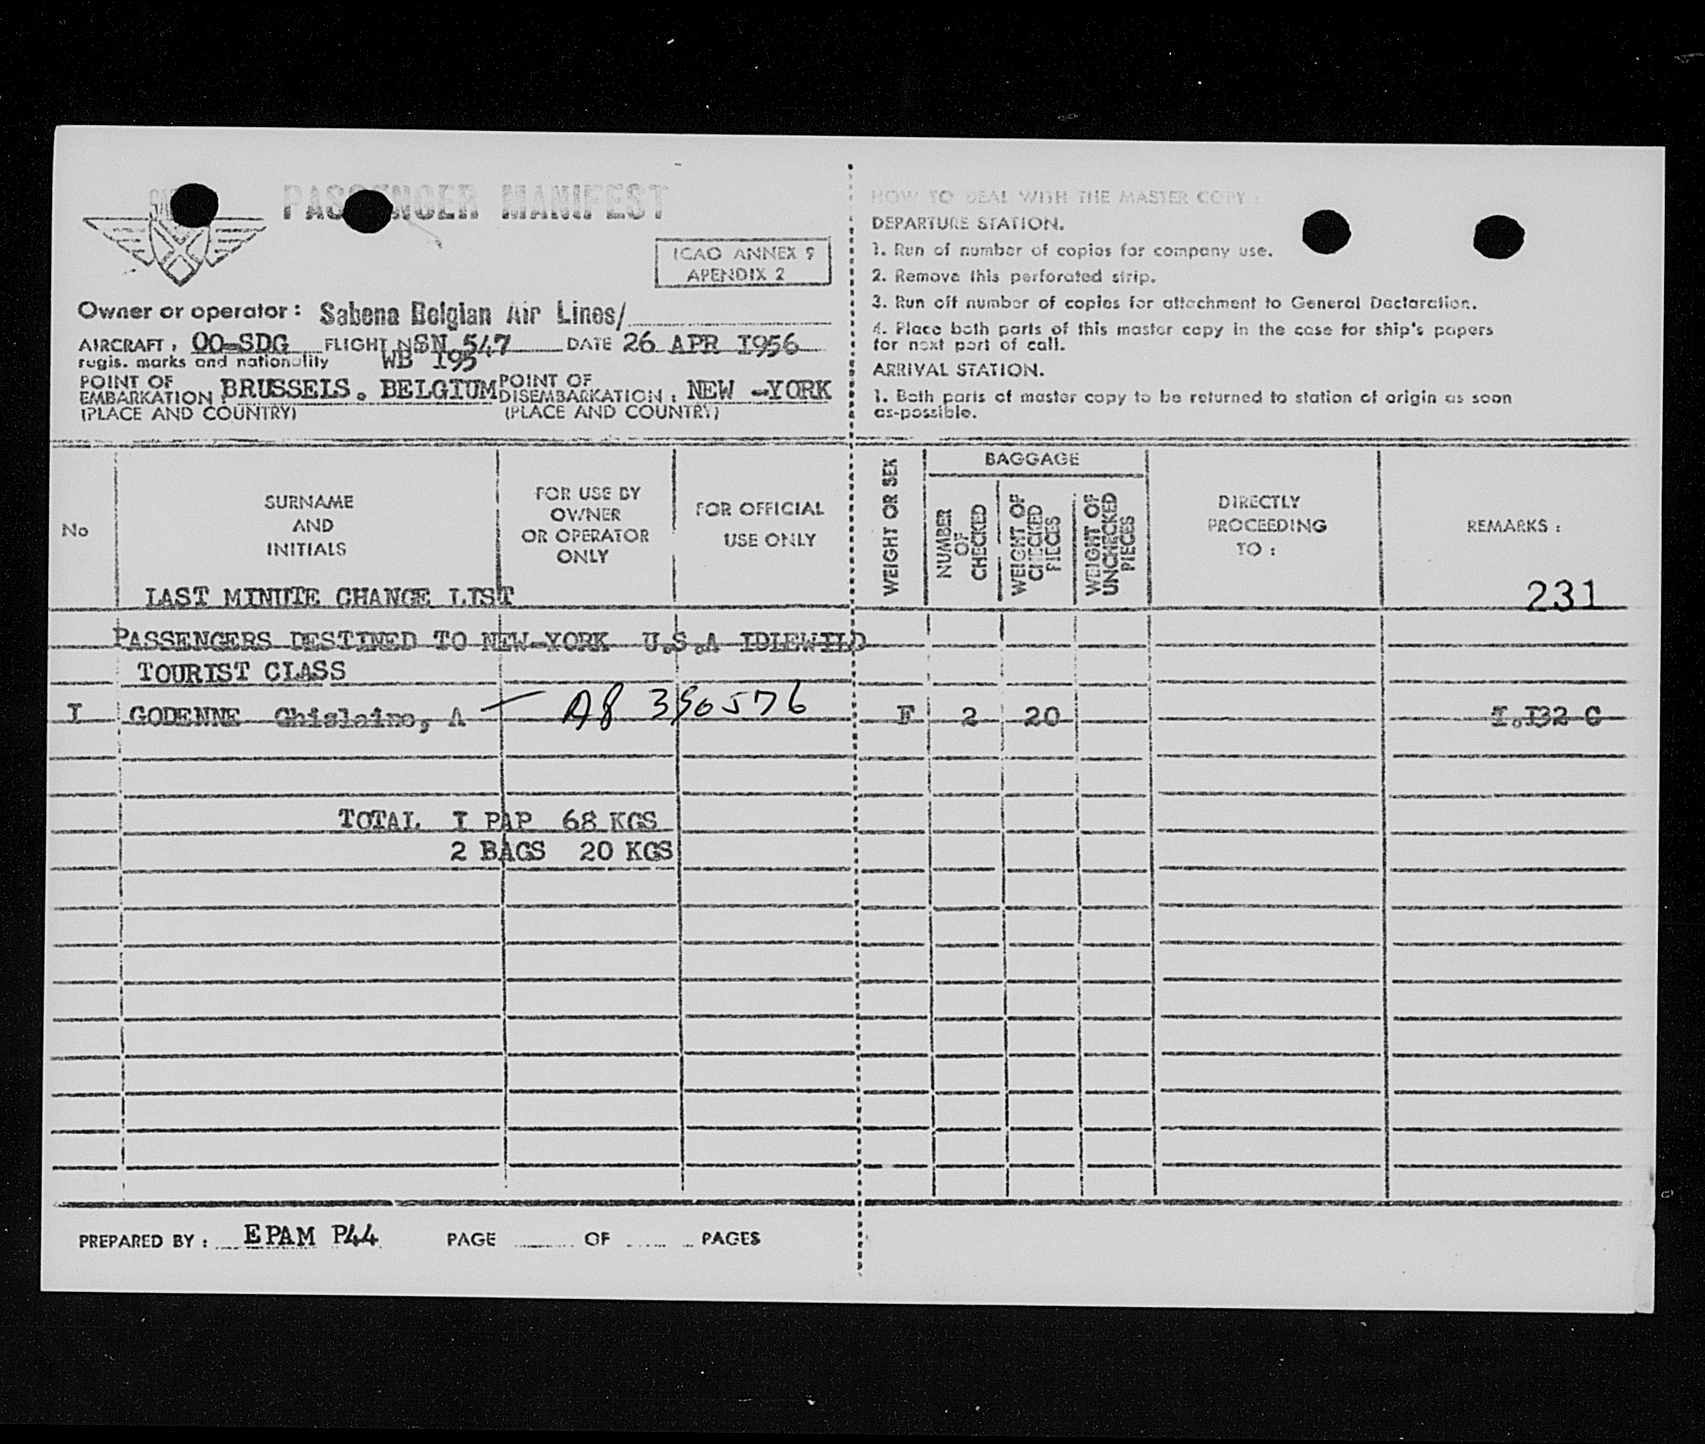 PASSENGER MANIFEST
ICAO ANNEX 9
APENDIX 2
Owner or operator : Sabena Belgian Air Lines/
AIRCRAFT : OO-SDG FLIGHT N SN 547 DATE 26 APR I956
regis. marks and nationality WB I95
POINT OF EMBARKATION : BRUSSELS. BELGIUM POINT OF DISEMBARKATION : NEW -YORK
(PLACE AND COUNTRY) (PLACE AND COUNTRY)
HOW TO DEAL WITH THE MASTER COPY :
DEPARTURE STATION.
1. Run of number of copies for company use.
2. Remove this perforated strip.
3. Run off number of copies for attachment to General Declaration.
4. Place both parts of this master copy in the case for ship's papers
for next port of call.
ARRIVAL STATION.
1. Both parts of master copy to be returned to station of origin as soon
as-possible.
No
SURNAME
AND
INITIALS
FOR USE BY
OWNER
OR OPERATOR
ONLY
FOR OFFICIAL
USE ONLY
WEIGHT OR SEX
BAGGAGE
NUMBER
OF
CHECKED
WEIGHT OF
CHECKED
PIECES
WEIGHT OF
UNCHECKED
PIECES
DIRECTLY
PROCEEDING
TO :
REMARKS :
231
LAST MINUTE CHANGE LIST
PASSENGERS DESTINED TO NEW-YORK U.S.A IDLEWILD
TOURIST CLASS
I GODENNE Ghislaine, A — A8 390576 F 2 20 I.I32 C
TOTAL I PAP 68 KGS
2 BAGS 20 KGS
PREPARED BY : EPAM P44 PAGE OF PAGES